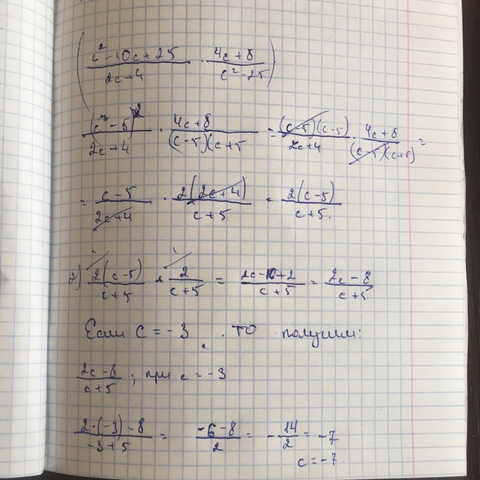 ( (c² - 10c + 25)/(2c + 4) · (4c + 8)/(c² - 25) )
(c - 5)²/(2c + 4) · (4c + 8)/((c - 5)(c + 5)) = (c - 5)(c - 5)/(2c + 4) · (4c + 8)/((c - 5)(c + 5)) =
= (c - 5)/(2c + 4) · 2(2c + 4)/(c + 5) = 2(c - 5)/(c + 5).
2) 2(c - 5)/(c + 5) + 2/(c + 5) = (2c - 10 + 2)/(c + 5) = (2c - 8)/(c + 5)
Если c = -3 , то получим:
(2c - 8)/(c + 5) ; при c = -3
(2·(-3) - 8)/(-3 + 5) = (-6 - 8)/2 = -14/2 = -7
c = -7.